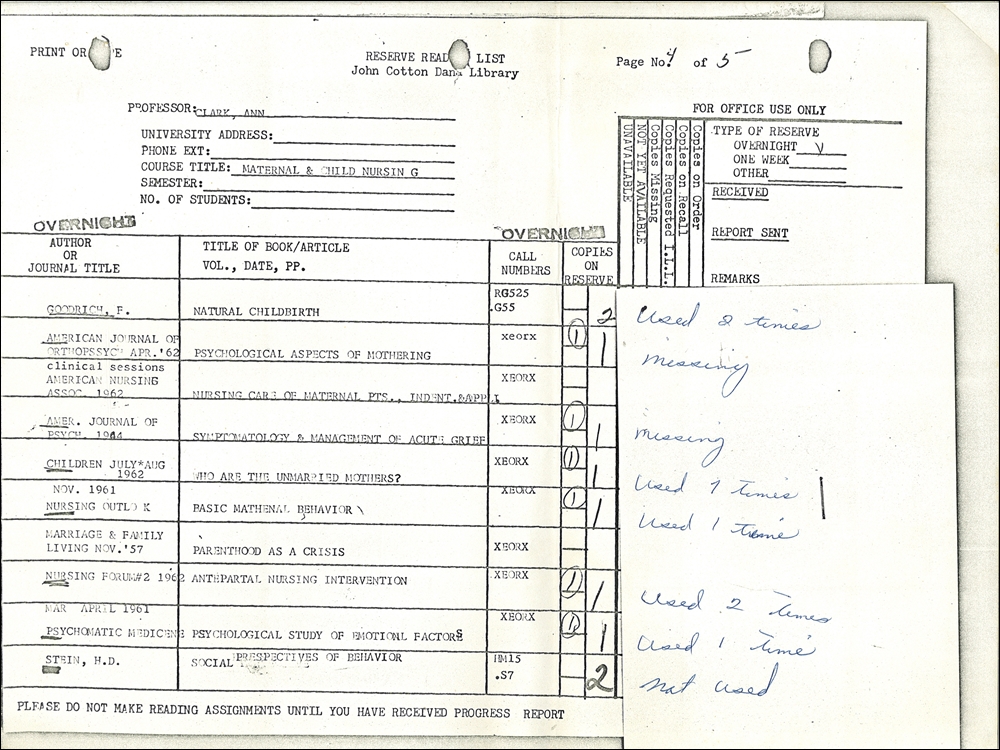 PRINT OR E
RESERVE READ LIST
John Cotton Dana Library
Page No 4 of 5
PROFESSOR: CLARK, ANN
UNIVERSITY ADDRESS:
PHONE EXT:
COURSE TITLE: MATERNAL & CHILD NURSIN G
SEMESTER:
NO. OF STUDENTS:
FOR OFFICE USE ONLY
Copies on Order
Copies on Recall
Copies Requested I.L.L.
Copies Missing
NOT YET AVAILABLE
UNAVAILABLE
TYPE OF RESERVE
OVERNIGHT V
ONE WEEK
OTHER
RECEIVED
REPORT SENT
REMARKS
OVERNIGHT
OVERNIGHT
AUTHOR
OR
JOURNAL TITLE
TITLE OF BOOK/ARTICLE
VOL., DATE, PP.
CALL
NUMBERS
COPIES
ON
RESERVE
GOODRICH, F.
NATURAL CHILDBIRTH
RG525
.G55
2
Used 2 times
AMERICAN JOURNAL OF
ORTHOPSSYCH APR.'62
PSYCHOLOGICAL ASPECTS OF MOTHERING
xeorx
1
1
missing
clinical sessions
AMERICAN NURSING
ASSOC. 1962
NURSING CARE OF MATERNAL PTS., INDENT.&APPLI
XEORX
AMER. JOURNAL OF
PSYCH. 1944
SYMPTOMATOLOGY & MANAGEMENT OF ACUTE GRIEF
XEORX
1
1
missing
CHILDREN JULY*AUG
1962
WHO ARE THE UNMARRIED MOTHERS?
XEORX
1
1
Used 7 times
NOV. 1961
NURSING OUTLO K
BASIC MATHENAL BEHAVIOR
XEORX
1
1
Used 1 time
MARRIAGE & FAMILY
LIVING NOV.'57
PARENTHOOD AS A CRISIS
XEORX
NURSING FORUM#2 1962
ANTEPARTAL NURSING INTERVENTION
XEORX
1
1
Used 2 times
MAR APRIL 1961
PSYCHOMATIC MEDICINE
PSYCHOLOGICAL STUDY OF EMOTIONAL FACTORS
XEORX
1
1
Used 1 time
STEIN, H.D.
SOCIAL PRESPECTIVES OF BEHAVIOR
HM15
.S7
2
not used
PLEASE DO NOT MAKE READING ASSIGNMENTS UNTIL YOU HAVE RECEIVED PROGRESS REPORT